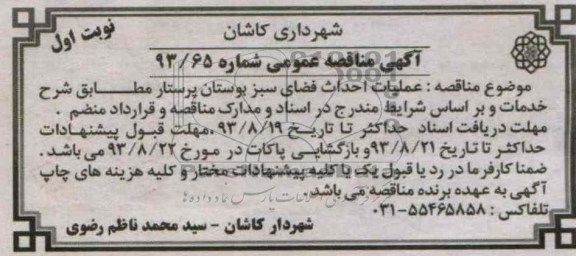 شهرداری کاشان
نوبت اول
آگهی مناقصه عمومی شماره ۹۳/۶۵
موضوع مناقصه : عملیات احداث فضای سبز بوستان پرستار مطابق شرح
خدمات و بر اساس شرایط مندرج در اسناد و مدارک مناقصه و قرارداد منضم .
مهلت دریافت اسناد حداکثر تا تاریخ ۹۳/۸/۱۹ ،مهلت قبول پیشنهادات
حداکثر تا تاریخ ۹۳/۸/۲۱ و بازگشایی پاکات در مورخ ۹۳/۸/۲۲ می باشد .
ضمنا کارفرما در رد یا قبول یک یا کلیه پیشنهادات مختار و کلیه هزینه های چاپ
آگهی به عهده برنده مناقصه می باشد .
تلفاکس : ۵۵۴۶۵۸۵۸-۰۳۱
شهردار کاشان - سید محمد ناظم رضوی